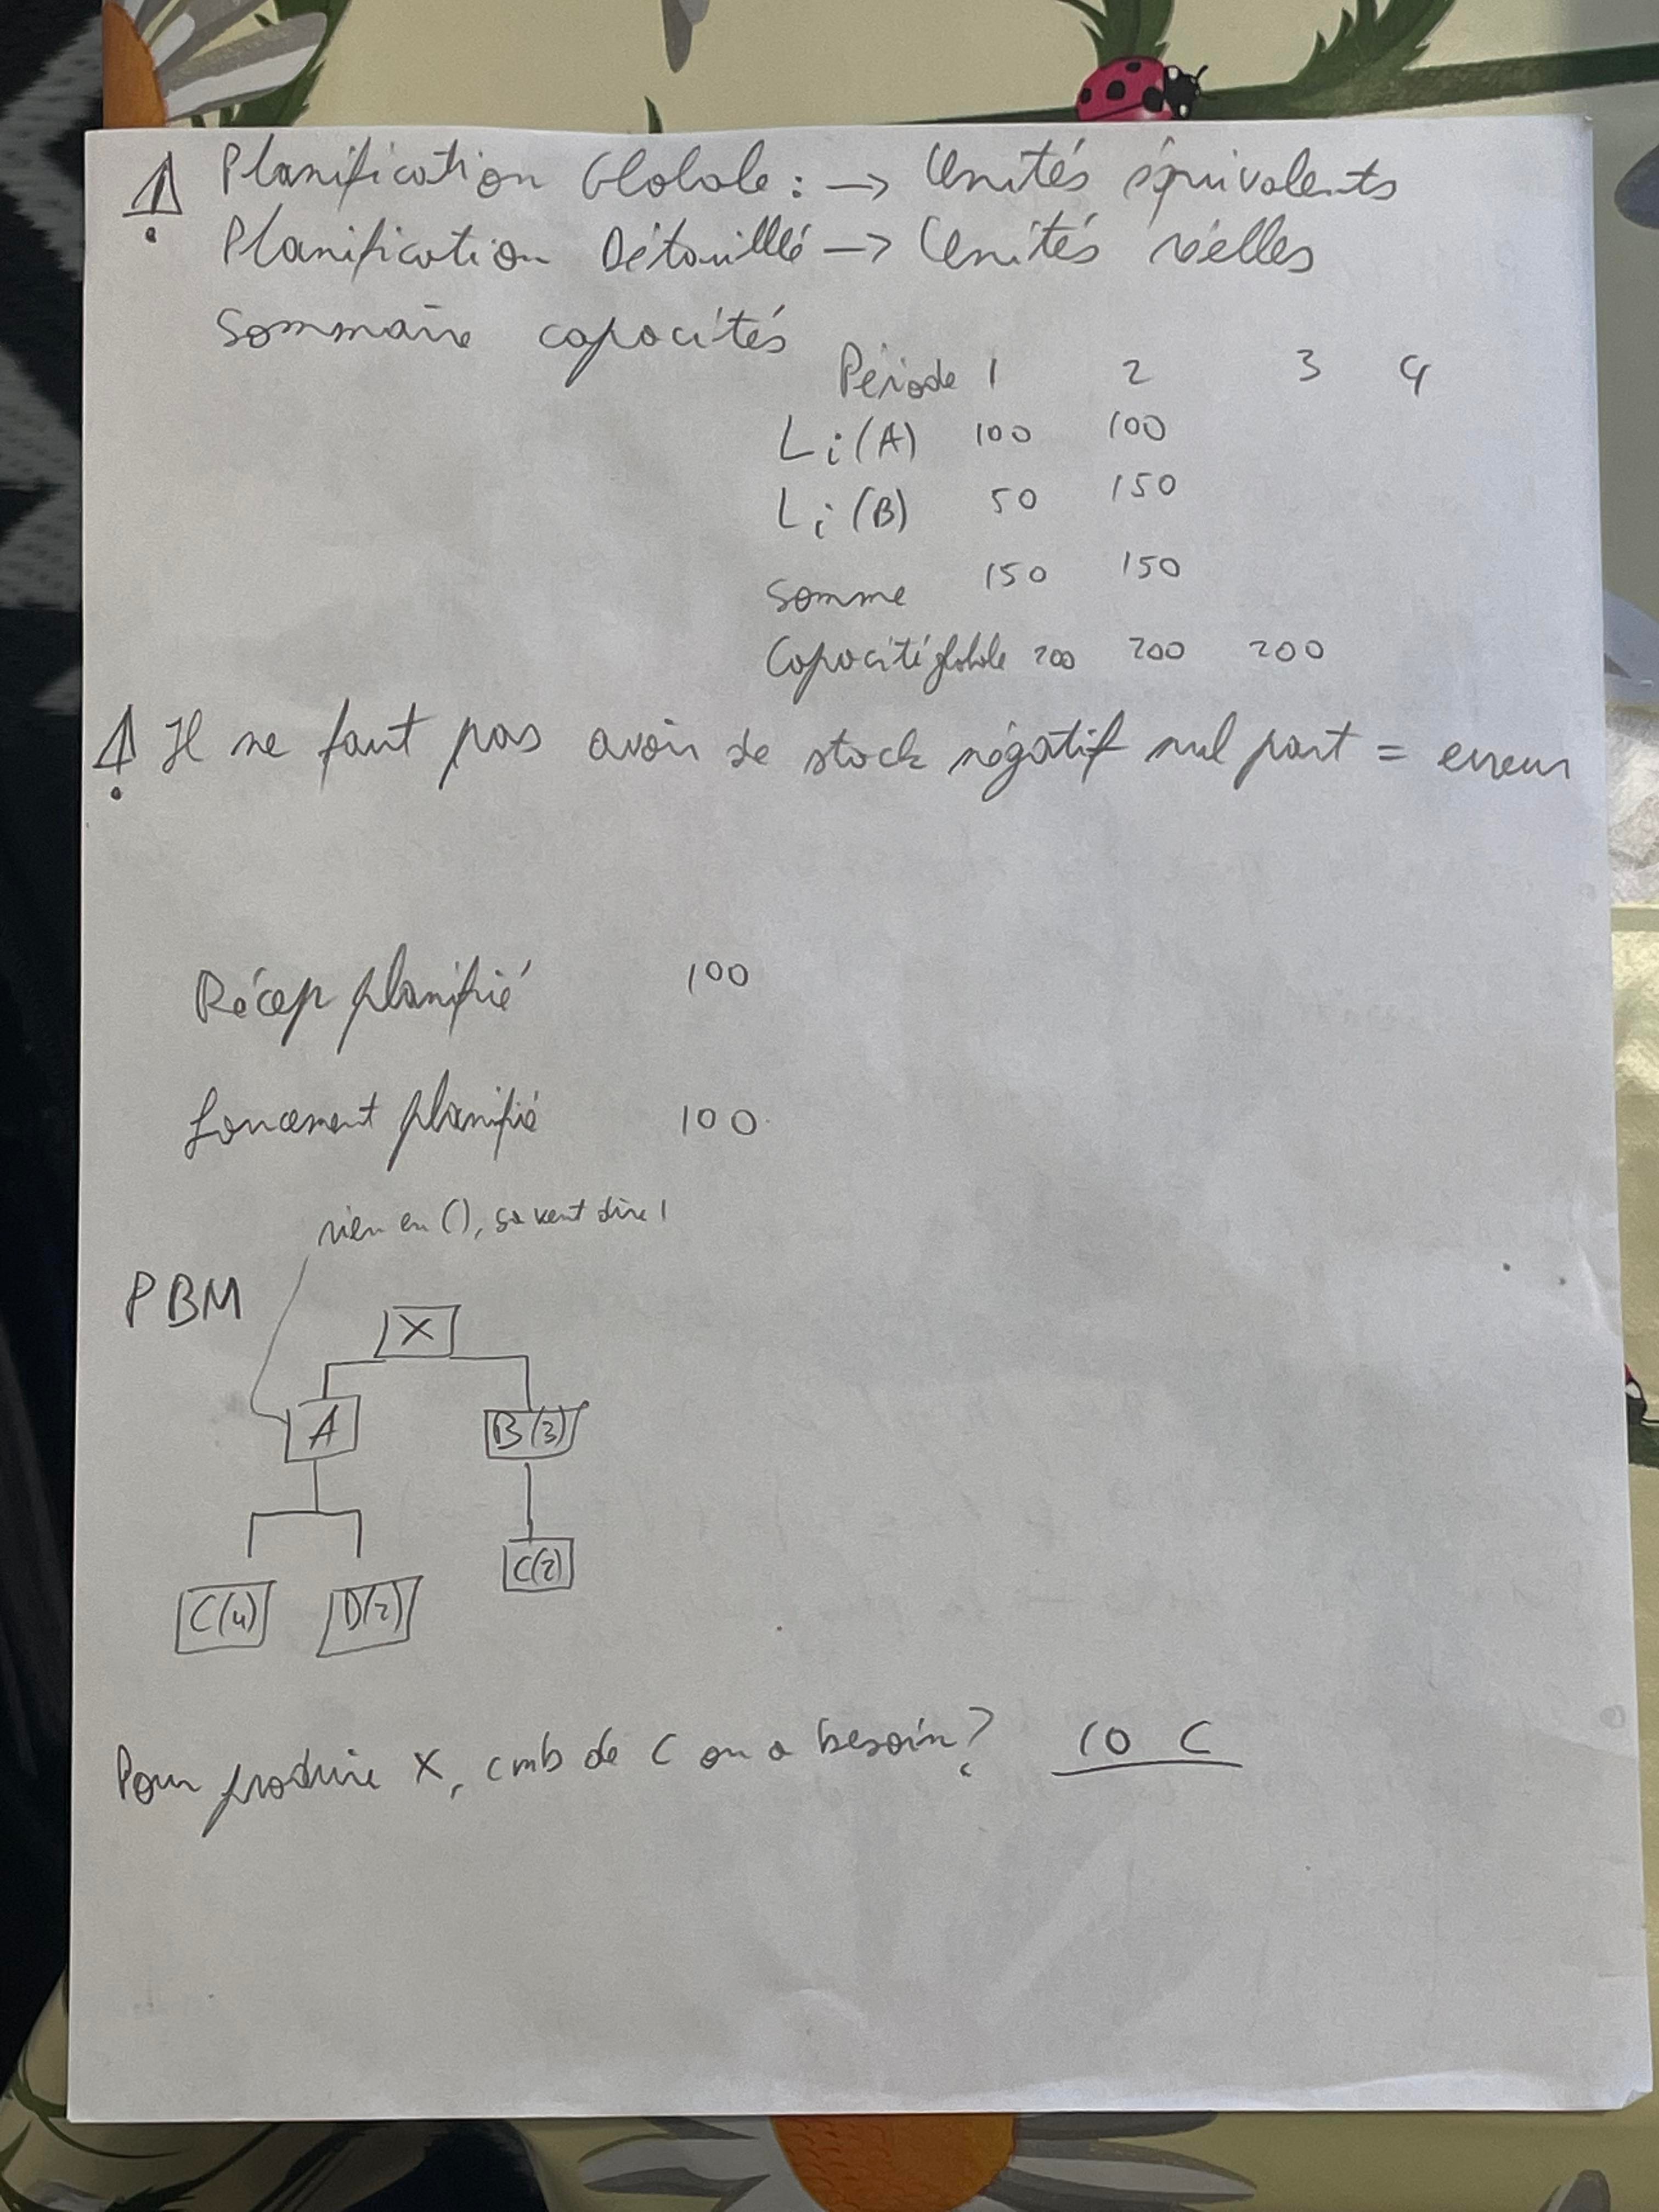 ! Planification Globale : → Unités équivalents
! Planification Détaillé → Unités réelles
Sommaire capacités
Période 1 2 3 4
Li(A) 100 100
Li(B) 50 150
Somme 150 150
Capacité globale 200 200 200
! Il ne faut pas avoir de stock négatif nul part = erreur
Récep planifié 100
Lancement planifié 100
rien en (), sa veut dire 1
PBM
X
A B(3)
C(2)
C(4) D(2)
Pour produire X, cmb de C on a besoin? 10 C